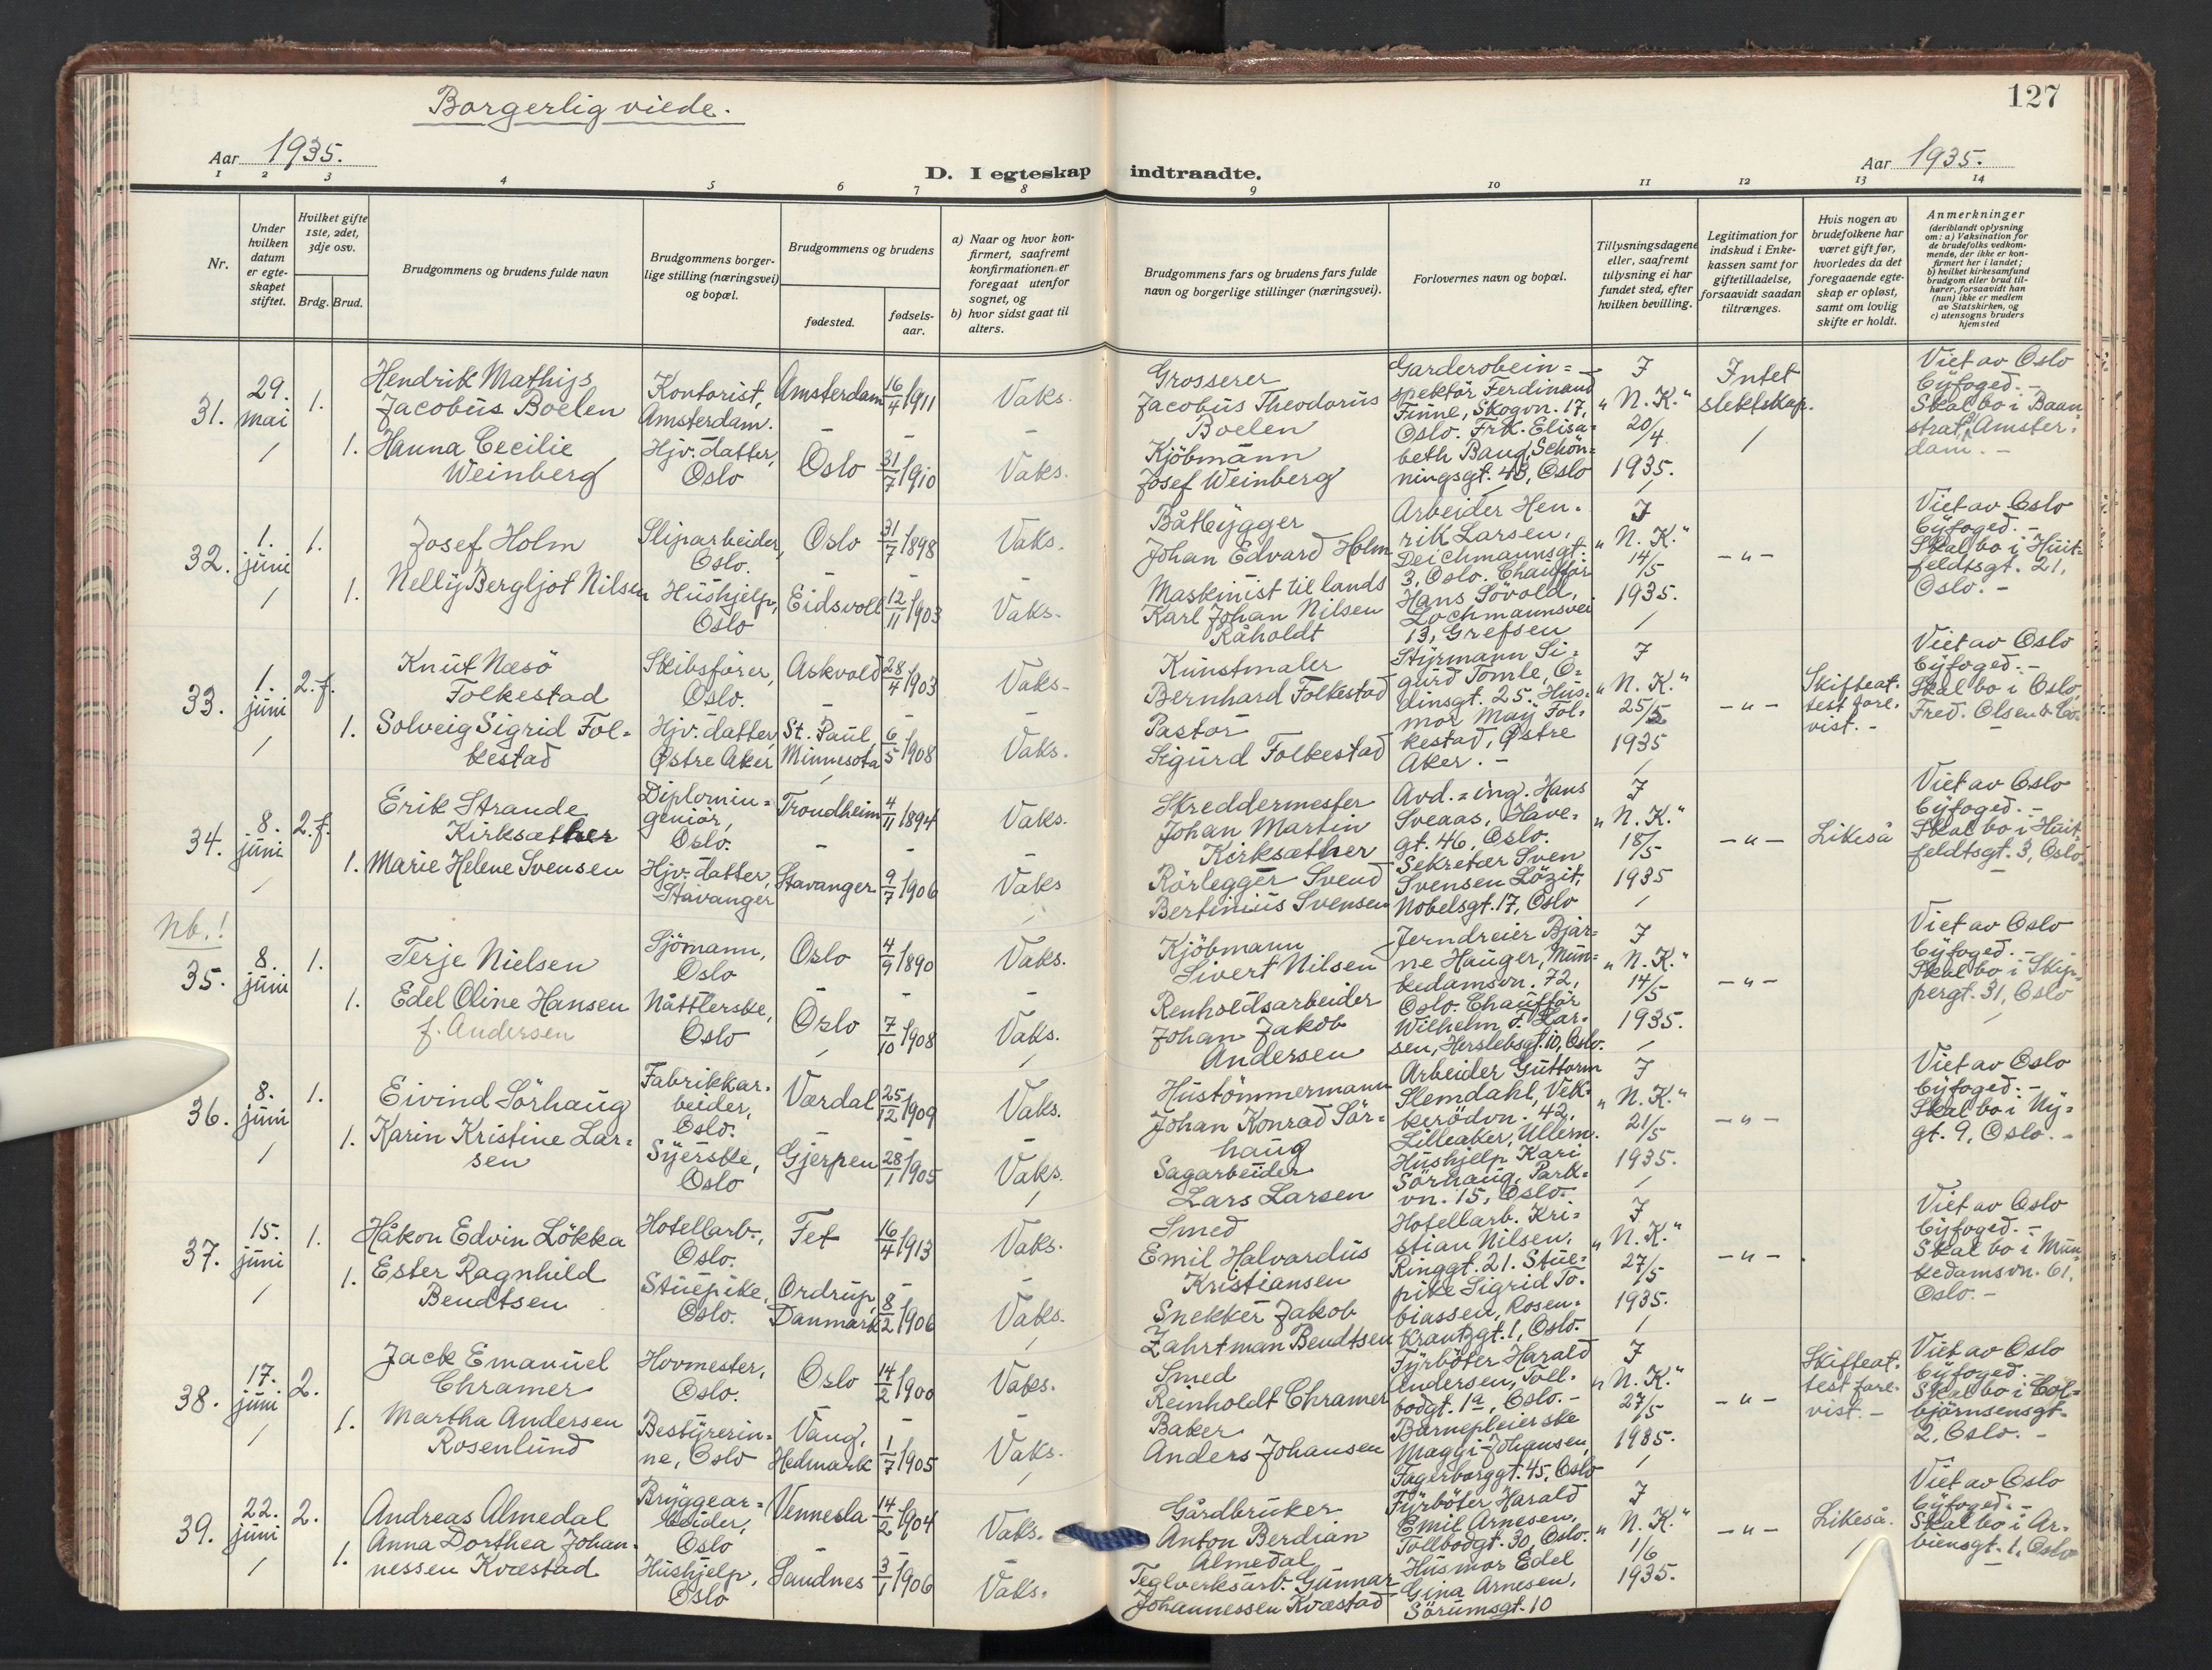 Borgerlig viede.
127
Aar 1935.
Aar 1935.
D. I egteskap indtraadte.
1 2 3 4 5 6 7 8 9 10 11 12 13 14
Nr.
Under hvilken datum er egteskapet stiftet.
Hvilket gifte 1ste, 2det, 3dje osv.
Brdg. Brud.
Brudgommens og brudens fulde navn
Brudgommens borgerlige stilling (næringsvei) og bopæl.
Brudgommens og brudens
fødested.
fødselsaar.
a) Naar og hvor konfirmert, saafremt konfirmationen er foregaat utenfor sognet, og
b) hvor sidst gaat til alters.
Brudgommens fars og brudens fars fulde navn og borgerlige stillinger (næringsvei).
Forlovernes navn og bopæl.
Tillysningsdagene eller, saafremt tillysning ei har fundet sted, efter hvilken bevilling.
Legitimation for indskud i Enkekassen samt for giftetilladelse, forsaavidt saadan tiltrænges.
Hvis nogen av brudefolkene har været gift før, hvorledes da det foregaaende egteskap er opløst, samt om lovlig skifte er holdt.
Anmerkninger (deriblandt oplysning om: a) Vaksination for de brudefolks vedkommende, der ikke er konfirmert her i landet; b) hvilket kirkesamfund brudgom eller brud tilhører, forsaavidt han (hun) ikke er medlem av Statskirken, og c) utensogns bruders hjemsted
31. 29. mai 1.
Hendrik Mathijs Jacobus Boelen
Kontorist, Amsterdam.
Amsterdam 16/4 1911
Vaks.
Grosserer Jacobus Theodorus Boelen
Garderobeinspektör Ferdinand Finne, Skogvn. 17, Oslo. Frk. Elisabeth Baug, Schönningsgt. 43, Oslo
I "N. K." 20/4 1935.
Intet slektskap.
Viet av Oslo byfoged. - Skal bo i Baanstraat, Amsterdam. -
1. Hanna Cecilie Weinberg
Hjv. datter, Oslo
Oslo 31/7 1910
Vaks.
Kjöbmann Josef Weinberg
32. 1. juni 1.
Josef Holm
Sliparbeider, Oslo.
Oslo 31/7 1898
Vaks.
Båtbygger Johan Edvard Holm
Arbeider Henrik Larsen, Deichmannsgt. 3, Oslo. Chaufför Hans Sövold, Lochmannsvei 13, Grefsen
I "N. K." 14/5 1935.
- " -
Viet av Oslo byfoged. - Skal bo i Huitfeldtsgt. 21, Oslo. -
1. Nelly Bergljot Nilsen
Hushjelp, Oslo
Eidsvoll 12/11 1903
Vaks.
Maskinist til lands Karl Johan Nilsen Råholdt
33. 1. juni 2. f.
Knut Næsö Folkestad
Skibsförer, Oslo.
Askvold 28/4 1903
Vaks.
Kunstmaler Bernhard Folkestad
Styrmann Sigurd Tomle, Odinsgt. 25. Husmor May Folkestad, Østre Aker. -
I "N. K." 25/5 1935
- " -
Skifteattest forevist. -
Viet av Oslo byfoged. - Skal bo i Oslo, Fred. Olsen & Co.
1. Solveig Sigrid Folkestad
Hjv. datter, Østre Aker
St. Paul Minnesota 6/5 1908
Vaks.
Pastor Sigurd Folkestad
34. 8. juni 2. f.
Erik Strande Kirksæther
Diplomingeniör, Oslo.
Trondheim 4/11 1894
Vaks.
Skreddermester Johan Martin Kirksæther
Avd.=ing. Hans Sveaas, Havegt. 46, Oslo. Sekretær Sven Svensen Lözit, Nobelsgt. 17, Oslo
I "N. K." 18/5 1935
- " -
Likeså
Viet av Oslo byfoged. - Skal bo i Huitfeldtsgt. 3, Oslo
1. Marie Helene Svensen
Hjv. datter, Stavanger
Stavanger 9/7 1906
Vaks
Rörlegger Svend Bertinius Svensen
Nb.!
35. 8. juni 1.
Terje Nielsen
Sjömann, Oslo
Oslo 4/9 1890
Vaks.
Kjöbmann Sivert Nilsen
Jerndreier Bjarne Hauger, Munkedamsvn. 72, Oslo. Chaufför Wilhelm F. Larsen, Herslebsgt. 10, Oslo.
I "N. K." 14/5 1935.
- " -
Viet av Oslo byfoged. - Skal bo i Skippergt. 31, Oslo
1. Edel Oline Hansen f. Andersen
Nåttlerske, Oslo
Oslo 7/10 1908
Vaks.
Renholdsarbeider Johan Jakob Andersen
36. 8. juni 1.
Eivind Sörhaug
Fabrikkarbeider, Oslo.
Værdal 25/12 1909
Vaks.
Hustömmermann Johan Konrad Sörhaug
Arbeider Guttorm Slemdahl, Vekkerödvn. 42, Lilleaker, Ullern. Hushjelp Kari Sörhaug, Parkvn. 15, Oslo.
I "N. K." 21/5 1935.
- " -
Viet av Oslo byfoged. - Skal bo i Nygt. 9, Oslo. -
1. Karin Kristine Larsen
Syerske, Oslo
Gjerpen 28/1 1905
Vaks.
Sagarbeider Lars Larsen
37. 15. juni 1.
Håkon Edvin Lökka
Hotellarb., Oslo.
Fet 16/4 1913
Vaks.
Smed Emil Halvardus Kristiansen
Hotellarb. Kristian Nilsen, Ringgt. 21. Stuepike Sigrid Tobiassen, Rosenkrantzgt. 1, Oslo.
I "N. K." 27/5 1935.
- " -
Viet av Oslo byfoged. - Skal bo i Munkedamsvn. 61, Oslo. -
1. Ester Ragnhild Bendtsen
Stuepike, Oslo.
Ordrup, Danmark 8/2 1906
Vaks.
Snekker Jakob Zahrtman Bendtsen
38. 17. juni 2.
Jack Emanuel Chramer
Hovmester, Oslo.
Oslo 14/2 1900
Vaks.
Smed Reinholdt Chramer
Fyrböter Harald Andersen, Tollbodgt. 1a, Oslo. - Barnepleierske Maggi Johansen, Fagerborggt. 45, Oslo
I "N. K." 27/5 1935.
- " -
Skifteattest forevist. -
Viet av Oslo byfoged. Skal bo i Colbjörnsensgt. 2, Oslo. -
1. Martha Andersen Rosenlund
Bestyrerinne, Oslo
Vang, Hedmark 1/7 1905
Vaks.
Baker Anders Johansen
39. 22. juni 2.
Andreas Almedal
Bryggearbeider, Oslo
Vennesla 14/2 1904
Vaks.
Gårdbruker Anton Berdian Almedal
Fyrböter Harald Emil Arnesen, Tollbodgt. 30, Oslo. Husmor Edel Gina Arnesen, Sörumsgt. 10
I "N. K." 1/6 1935.
- " -
Likeså.
Viet av Oslo byfoged. - Skal bo i Arbiensgt. 1, Oslo
1. Anna Dorthea Johannessen Kvæstad
Hushjelp, Oslo
Sandnes 3/1 1906
Vaks.
Teglverksarb. Gunnar Johannessen Kvæstad